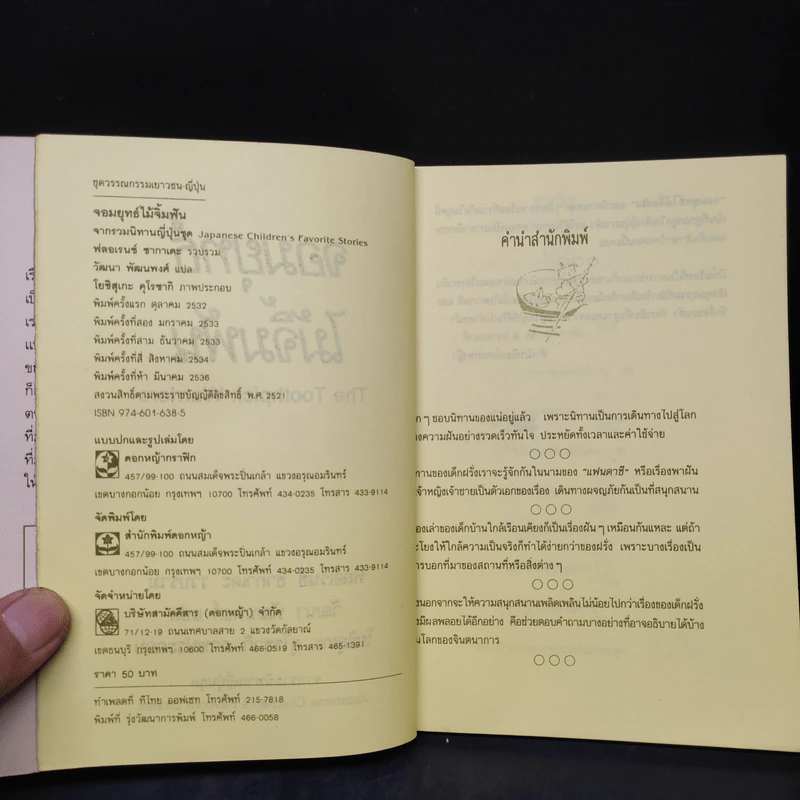 ชุดวรรณกรรมเยาวชน-ญี่ปุ่น
จอมยุทธ์ไม้จิ้มฟัน
จากรวมนิทานญี่ปุ่นชุด Japanese Children's Favorite Stories
ฟลอเรนซ์ ซากาเดะ รวบรวม
วัฒนา พัฒนพงศ์ แปล
โยชิสุเกะ คุโรซากิ ภาพประกอบ
พิมพ์ครั้งแรก ตุลาคม 2532
พิมพ์ครั้งที่สอง มกราคม 2533
พิมพ์ครั้งที่สาม ธันวาคม 2533
พิมพ์ครั้งที่สี่ สิงหาคม 2534
พิมพ์ครั้งที่ห้า มีนาคม 2536
สงวนสิทธิ์ตามพระราชบัญญัติลิขสิทธิ์ พ.ศ. 2521
ISBN 974-601-638-5
แบบปกและรูปเล่มโดย
ดอกหญ้ากราฟิก
457/99-100 ถนนสมเด็จพระปิ่นเกล้า แขวงอรุณอมรินทร์
เขตบางกอกน้อย กรุงเทพฯ 10700 โทรศัพท์ 434-0235 โทรสาร 433-9114
จัดพิมพ์โดย
สำนักพิมพ์ดอกหญ้า
457/99-100 ถนนสมเด็จพระปิ่นเกล้า แขวงอรุณอมรินทร์
เขตบางกอกน้อย กรุงเทพฯ 10700 โทรศัพท์ 434-0235 โทรสาร 433-9114
จัดจำหน่ายโดย
บริษัทสามัคคีสาร (ดอกหญ้า) จำกัด
71/12-19 ถนนเทศบาลสาย 2 แขวงวัดกัลยาณ์
เขตธนบุรี กรุงเทพฯ 10600 โทรศัพท์ 466-0519 โทรสาร 465-1391
ราคา 50 บาท
ทำเพลตที่ ทีไทย ออฟเซท โทรศัพท์ 215-7818
พิมพ์ที่ รุ่งวัฒนาการพิมพ์ โทรศัพท์ 466-0058
คำนำสำนักพิมพ์
ก ๆ ชอบนิทานของแน่อยู่แล้ว เพราะนิทานเป็นการเดินทางไปสู่โลก
งความฝันอย่างรวดเร็วทันใจ ประหยัดทั้งเวลาและค่าใช้จ่าย
○○○
ทานของเด็กฝรั่งเราจะรู้จักกันในนามของ "แฟนตาซี" หรือเรื่องพาฝัน
จ้าหญิงเจ้าชายเป็นตัวเอกของเรื่อง เดินทางผจญภัยกันเป็นที่สนุกสนาน
○○○
องเล่าของเด็กบ้านใกล้เรือนเคียงก็เป็นเรื่องฝัน ๆ เหมือนกันแหละ แต่ถ้า
ะโยงให้ใกล้ความเป็นจริงก็ทำได้ง่ายกว่าของฝรั่ง เพราะบางเรื่องเป็น
การบอกที่มาของสถานที่หรือสิ่งต่าง ๆ
○○○
งนอกจากจะให้ความสนุกสนานเพลิดเพลินไม่น้อยไปกว่าเรื่องของเด็กฝรั่ง
งมีผลพลอยได้อีกอย่าง คือช่วยตอบคำถามบางอย่างที่อาจอธิบายได้บ้าง
นโลกของจินตนาการ
○○○